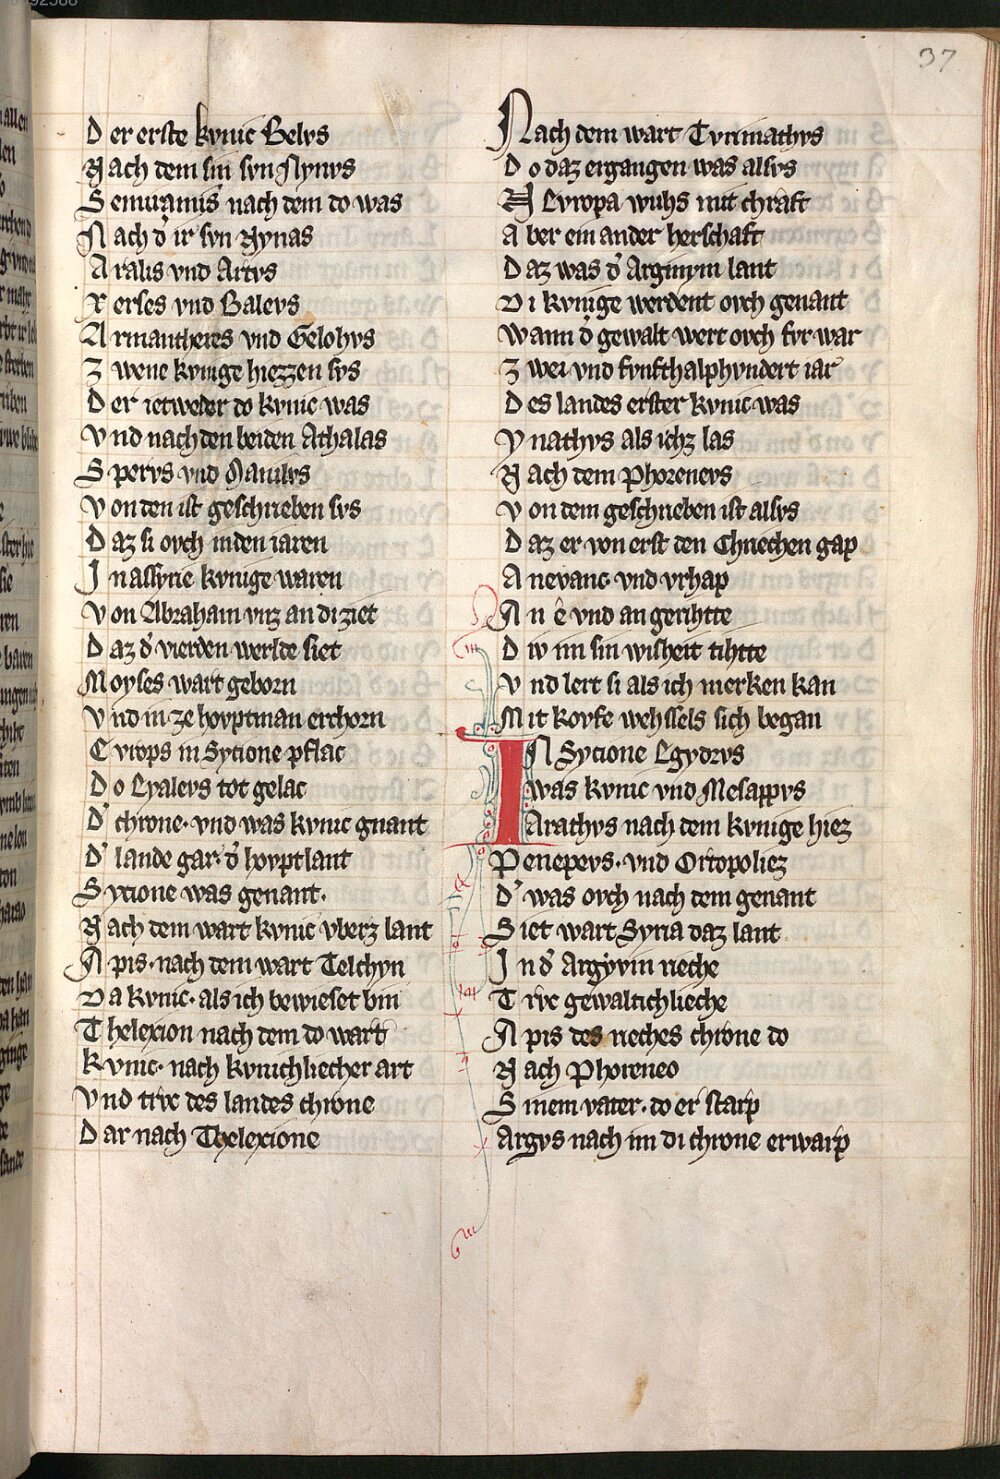 37
Der erste kvnic Belvs
Nach dem sin svn Nynvs
Semiramis nach dem do was
Nach d' ir svn Nynas
Aralis vnd Artvs
Xerses vnd Balevs
Armantheres vnd Gelohvs
Zwene kvnige hiezzen svs
Der ietweder do kvnic was
Vnd nach den beiden Athalas
Spervs vnd Manilvs
Von den ist geschrieben svs
Daz si ovch inden iaren
In assyrie kvnige waren
Von Abraham vnz an di ziet
Daz d' vierden werlde siet
Moyses wart geborn
Vnd in ze hovptman erchorn
Cvrops in Sycione pflac
Do Lyalevs tot gelac
D' chrone· vnd was kvnic gnant
D' lande gar· d' hovptlant
Sycione was genant·
Nach dem wart kvnic vberz lant
Apis· nach dem wart Telchyn
Da kvnic· als ich bewieset bin
Thelexion nach dem do wart
Kvnic· nach kvnichliecher art
Vnd trvc des landes chrone
Dar nach Thelexione
Nach dem wart Tvrimachvs
Do daz ergangen was alsvs
Evropa wuhs mit chraft
Aber ein ander herschaft
Daz was d' Arginym lant
Di kvnige werdent ovch genant
Wann d' gewalt wert ovch fvr war
Zwei vnd fvnfthalphvndert iar
Des landes erster kvnic was
Ynachvs als ichz las
Nach dem Phorenevs
Von dem geschrieben ist allvs
Daz er von erst den Chriechen gap
Anevanc vnd vrhap
An ê vnd an gerihtte
Div im sin wisheit tihtte
Vnd lert si als ich merken kan
Mit kovfe wehssels sich began
IN Sycione Egydrvs
was kvnic vnd Mesappvs
Arachvs nach dem kvnige hiez
Penepevs· vnd Ortopoliez
D' was ovch nach dem genant
Siet wart Syria daz lant
In d' Argyvin rieche
Trvc gewaltichlieche
Apis des rieches chrone do
Nach Phoreneo
Sinem vater· do er starp
Argvs nach im di chrone erwarp